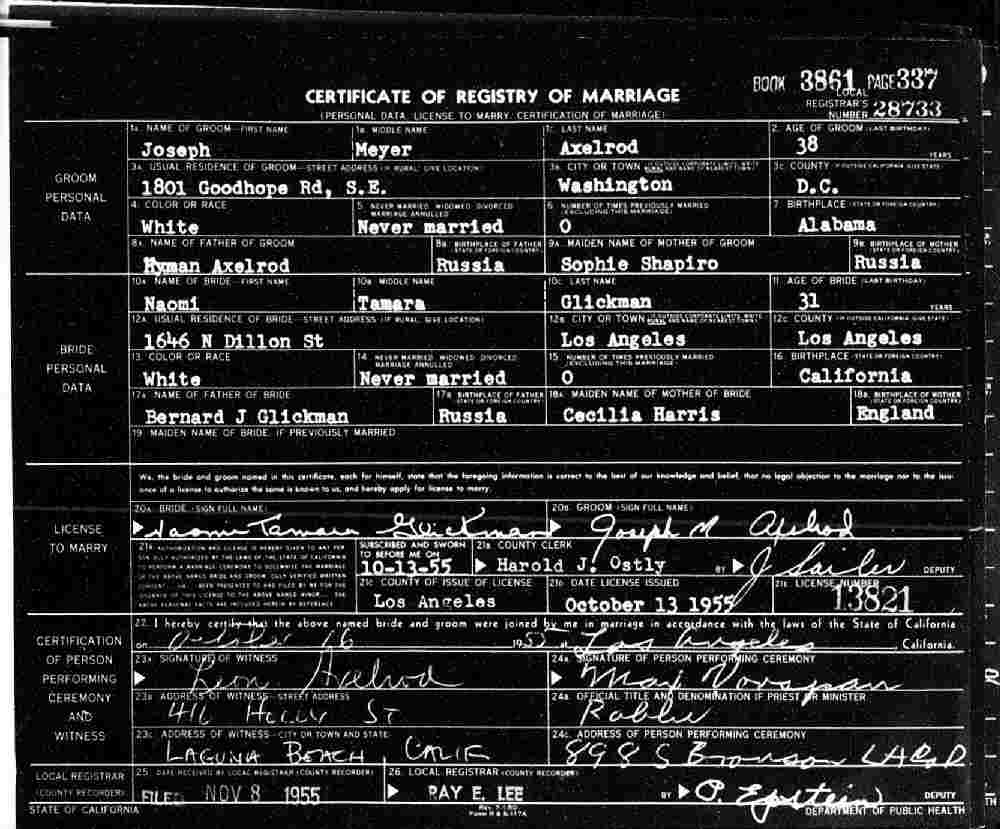 BOOK 3861 PAGE 337
LOCAL
REGISTRAR'S
NUMBER 28733
CERTIFICATE OF REGISTRY OF MARRIAGE
(PERSONAL DATA, LICENSE TO MARRY, CERTIFICATION OF MARRIAGE)
GROOM
PERSONAL
DATA
1A. NAME OF GROOM—FIRST NAME 1B. MIDDLE NAME 1C. LAST NAME 2. AGE OF GROOM (LAST BIRTHDAY)
Joseph Meyer Axelrod 38 YEARS
3A. USUAL RESIDENCE OF GROOM—STREET ADDRESS (IF RURAL, GIVE LOCATION) 3B. CITY OR TOWN 3C. COUNTY (IF OUTSIDE CALIFORNIA, GIVE STATE)
1801 Goodhope Rd, S.E. Washington D.C.
4. COLOR OR RACE 5. NEVER MARRIED, WIDOWED, DIVORCED, MARRIAGE ANNULLED 6. NUMBER OF TIMES PREVIOUSLY MARRIED (EXCLUDING THIS MARRIAGE) 7. BIRTHPLACE (STATE OR FOREIGN COUNTRY)
White Never married 0 Alabama
8A. NAME OF FATHER OF GROOM 8B. BIRTHPLACE OF FATHER (STATE OR FOREIGN COUNTRY) 9A. MAIDEN NAME OF MOTHER OF GROOM 9B. BIRTHPLACE OF MOTHER (STATE OR FOREIGN COUNTRY)
Hyman Axelrod Russia Sophie Shapiro Russia
BRIDE
PERSONAL
DATA
10A. NAME OF BRIDE—FIRST NAME 10B. MIDDLE NAME 10C. LAST NAME 11. AGE OF BRIDE (LAST BIRTHDAY)
Naomi Tamara Glickman 31 YEARS
12A. USUAL RESIDENCE OF BRIDE—STREET ADDRESS (IF RURAL, GIVE LOCATION) 12B. CITY OR TOWN 12C. COUNTY (IF OUTSIDE CALIFORNIA, GIVE STATE)
1646 N Dillon St Los Angeles Los Angeles
13. COLOR OR RACE 14. NEVER MARRIED, WIDOWED, DIVORCED, MARRIAGE ANNULLED 15. NUMBER OF TIMES PREVIOUSLY MARRIED (EXCLUDING THIS MARRIAGE) 16. BIRTHPLACE (STATE OR FOREIGN COUNTRY)
White Never married 0 California
17A. NAME OF FATHER OF BRIDE 17B. BIRTHPLACE OF FATHER (STATE OR FOREIGN COUNTRY) 18A. MAIDEN NAME OF MOTHER OF BRIDE 18B. BIRTHPLACE OF MOTHER (STATE OR FOREIGN COUNTRY)
Bernard J Glickman Russia Cecilia Harris England
19. MAIDEN NAME OF BRIDE, IF PREVIOUSLY MARRIED
LICENSE
TO MARRY
We, the bride and groom named in this certificate, each for himself, state that the foregoing information is correct to the best of our knowledge and belief, that no legal objection to the marriage nor to the issu-
ance of a license to authorize the same is known to us, and hereby apply for license to marry.
20A. BRIDE (SIGN FULL NAME) 20B. GROOM (SIGN FULL NAME)
Naomi Tamara Glickman Joseph M Axelrod
SUBSCRIBED AND SWORN TO BEFORE ME ON 21B. COUNTY CLERK
10-13-55 Harold J. Ostly BY J Sailer DEPUTY
21C. COUNTY OF ISSUE OF LICENSE 21D. DATE LICENSE ISSUED 21E. LICENSE NUMBER
Los Angeles October 13 1955 13821
CERTIFICATION
OF PERSON
PERFORMING
CEREMONY
AND
WITNESS
22. I hereby certify that the above named bride and groom were joined by me in marriage in accordance with the laws of the State of California
on October 16 1955 at Los Angeles, California.
23A. SIGNATURE OF WITNESS 24A. SIGNATURE OF PERSON PERFORMING CEREMONY
Leon Axelrod Max Vorspan
23B. ADDRESS OF WITNESS—STREET ADDRESS 24B. OFFICIAL TITLE AND DENOMINATION IF PRIEST OR MINISTER
416 Holly St Rabbi
23C. ADDRESS OF WITNESS—CITY OR TOWN AND STATE 24C. ADDRESS OF PERSON PERFORMING CEREMONY
LAGUNA BEACH CALIF 898 S Bronson LA
LOCAL REGISTRAR
(COUNTY RECORDER)
25. DATE RECEIVED BY LOCAL REGISTRAR (COUNTY RECORDER) 26. LOCAL REGISTRAR (COUNTY RECORDER)
FILED NOV 8 1955 RAY E. LEE BY P. Epstein DEPUTY
STATE OF CALIFORNIA DEPARTMENT OF PUBLIC HEALTH